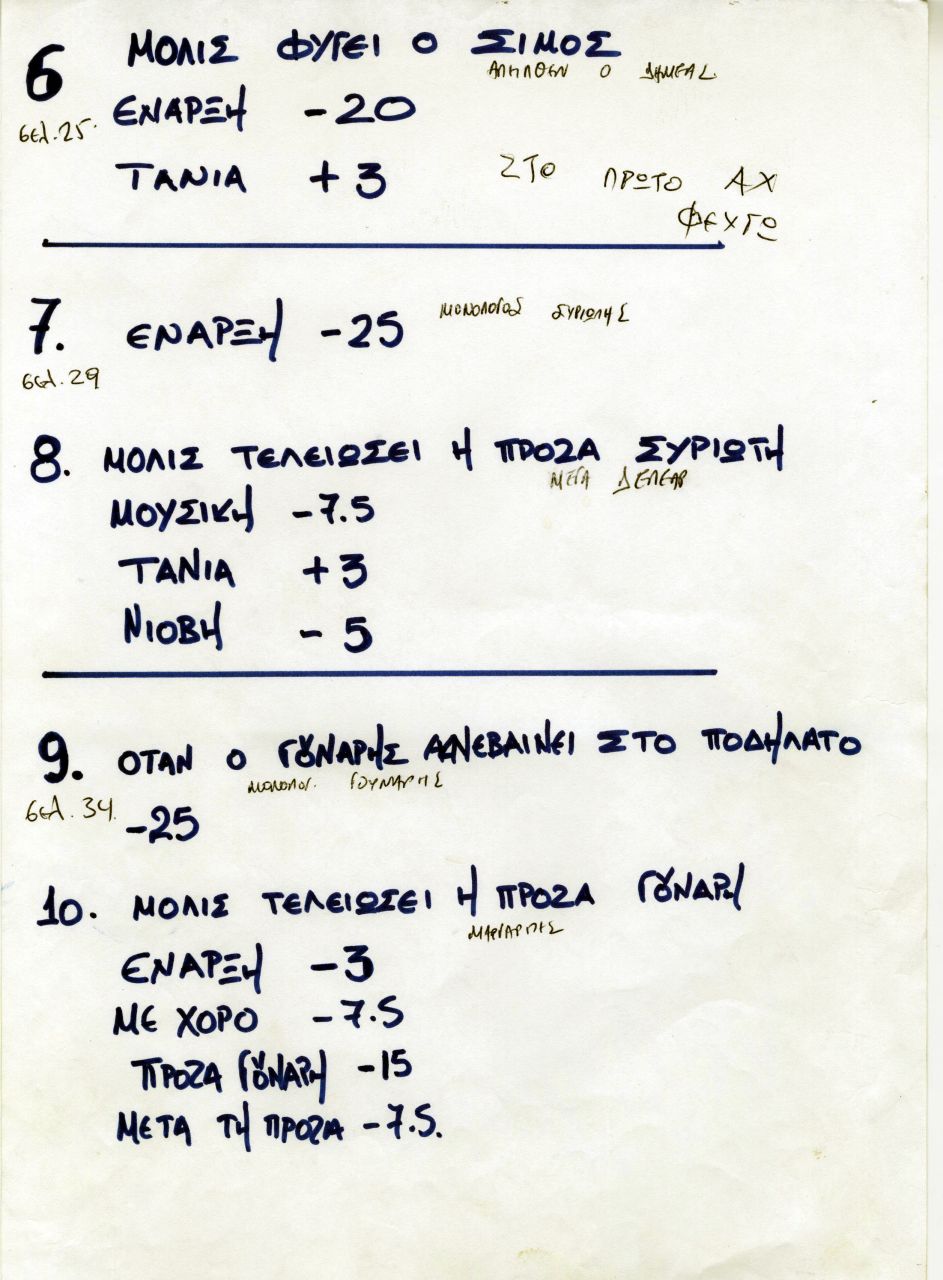 6 ΜΟΛΙΣ ΦΥΓΕΙ Ο ΣΙΜΟΣ
ΑΠΗΛΘΕΝ Ο
σελ.25. ΕΝΑΡΞΗ -20
ΤΑΝΙΑ +3 ΣΤΟ ΠΡΩΤΟ ΑΧ
ΦΕΥΓΩ
7. ΕΝΑΡΞΗ -25 ΜΟΝΟΛΟΓΟΣ ΣΥΡΙΩΤΗΣ
σελ.29
8. ΜΟΛΙΣ ΤΕΛΕΙΩΣΕΙ Η ΠΡΟΖΑ ΣΥΡΙΩΤΗ
ΜΕΓΑ ΔΕΛΕΑΡ
ΜΟΥΣΙΚΗ -7.5
ΤΑΝΙΑ +3
ΝΙΟΒΗ -5
9. ΟΤΑΝ Ο ΓΟΥΝΑΡΗΣ ΑΝΕΒΑΙΝΕΙ ΣΤΟ ΠΟΔΗΛΑΤΟ
ΜΟΝΟΛΟΓ. ΓΟΥΝΑΡΗΣ
σελ. 34. -25
10. ΜΟΛΙΣ ΤΕΛΕΙΩΣΕΙ Η ΠΡΟΖΑ ΓΟΥΝΑΡΗ
ΕΝΑΡΞΗ -3
ΜΕ ΧΟΡΟ -7.5
ΠΡΟΖΑ ΓΟΥΝΑΡΗ -15
ΜΕΤΑ ΤΗ ΠΡΟΖΑ -7.5.